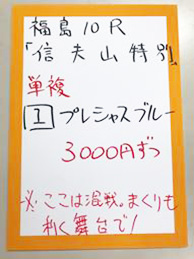 福島10R
「信夫山特別」
単複
1 プレシャスブルー
3000円ずつ
※ここは混戦。まくりも
利く舞台で!